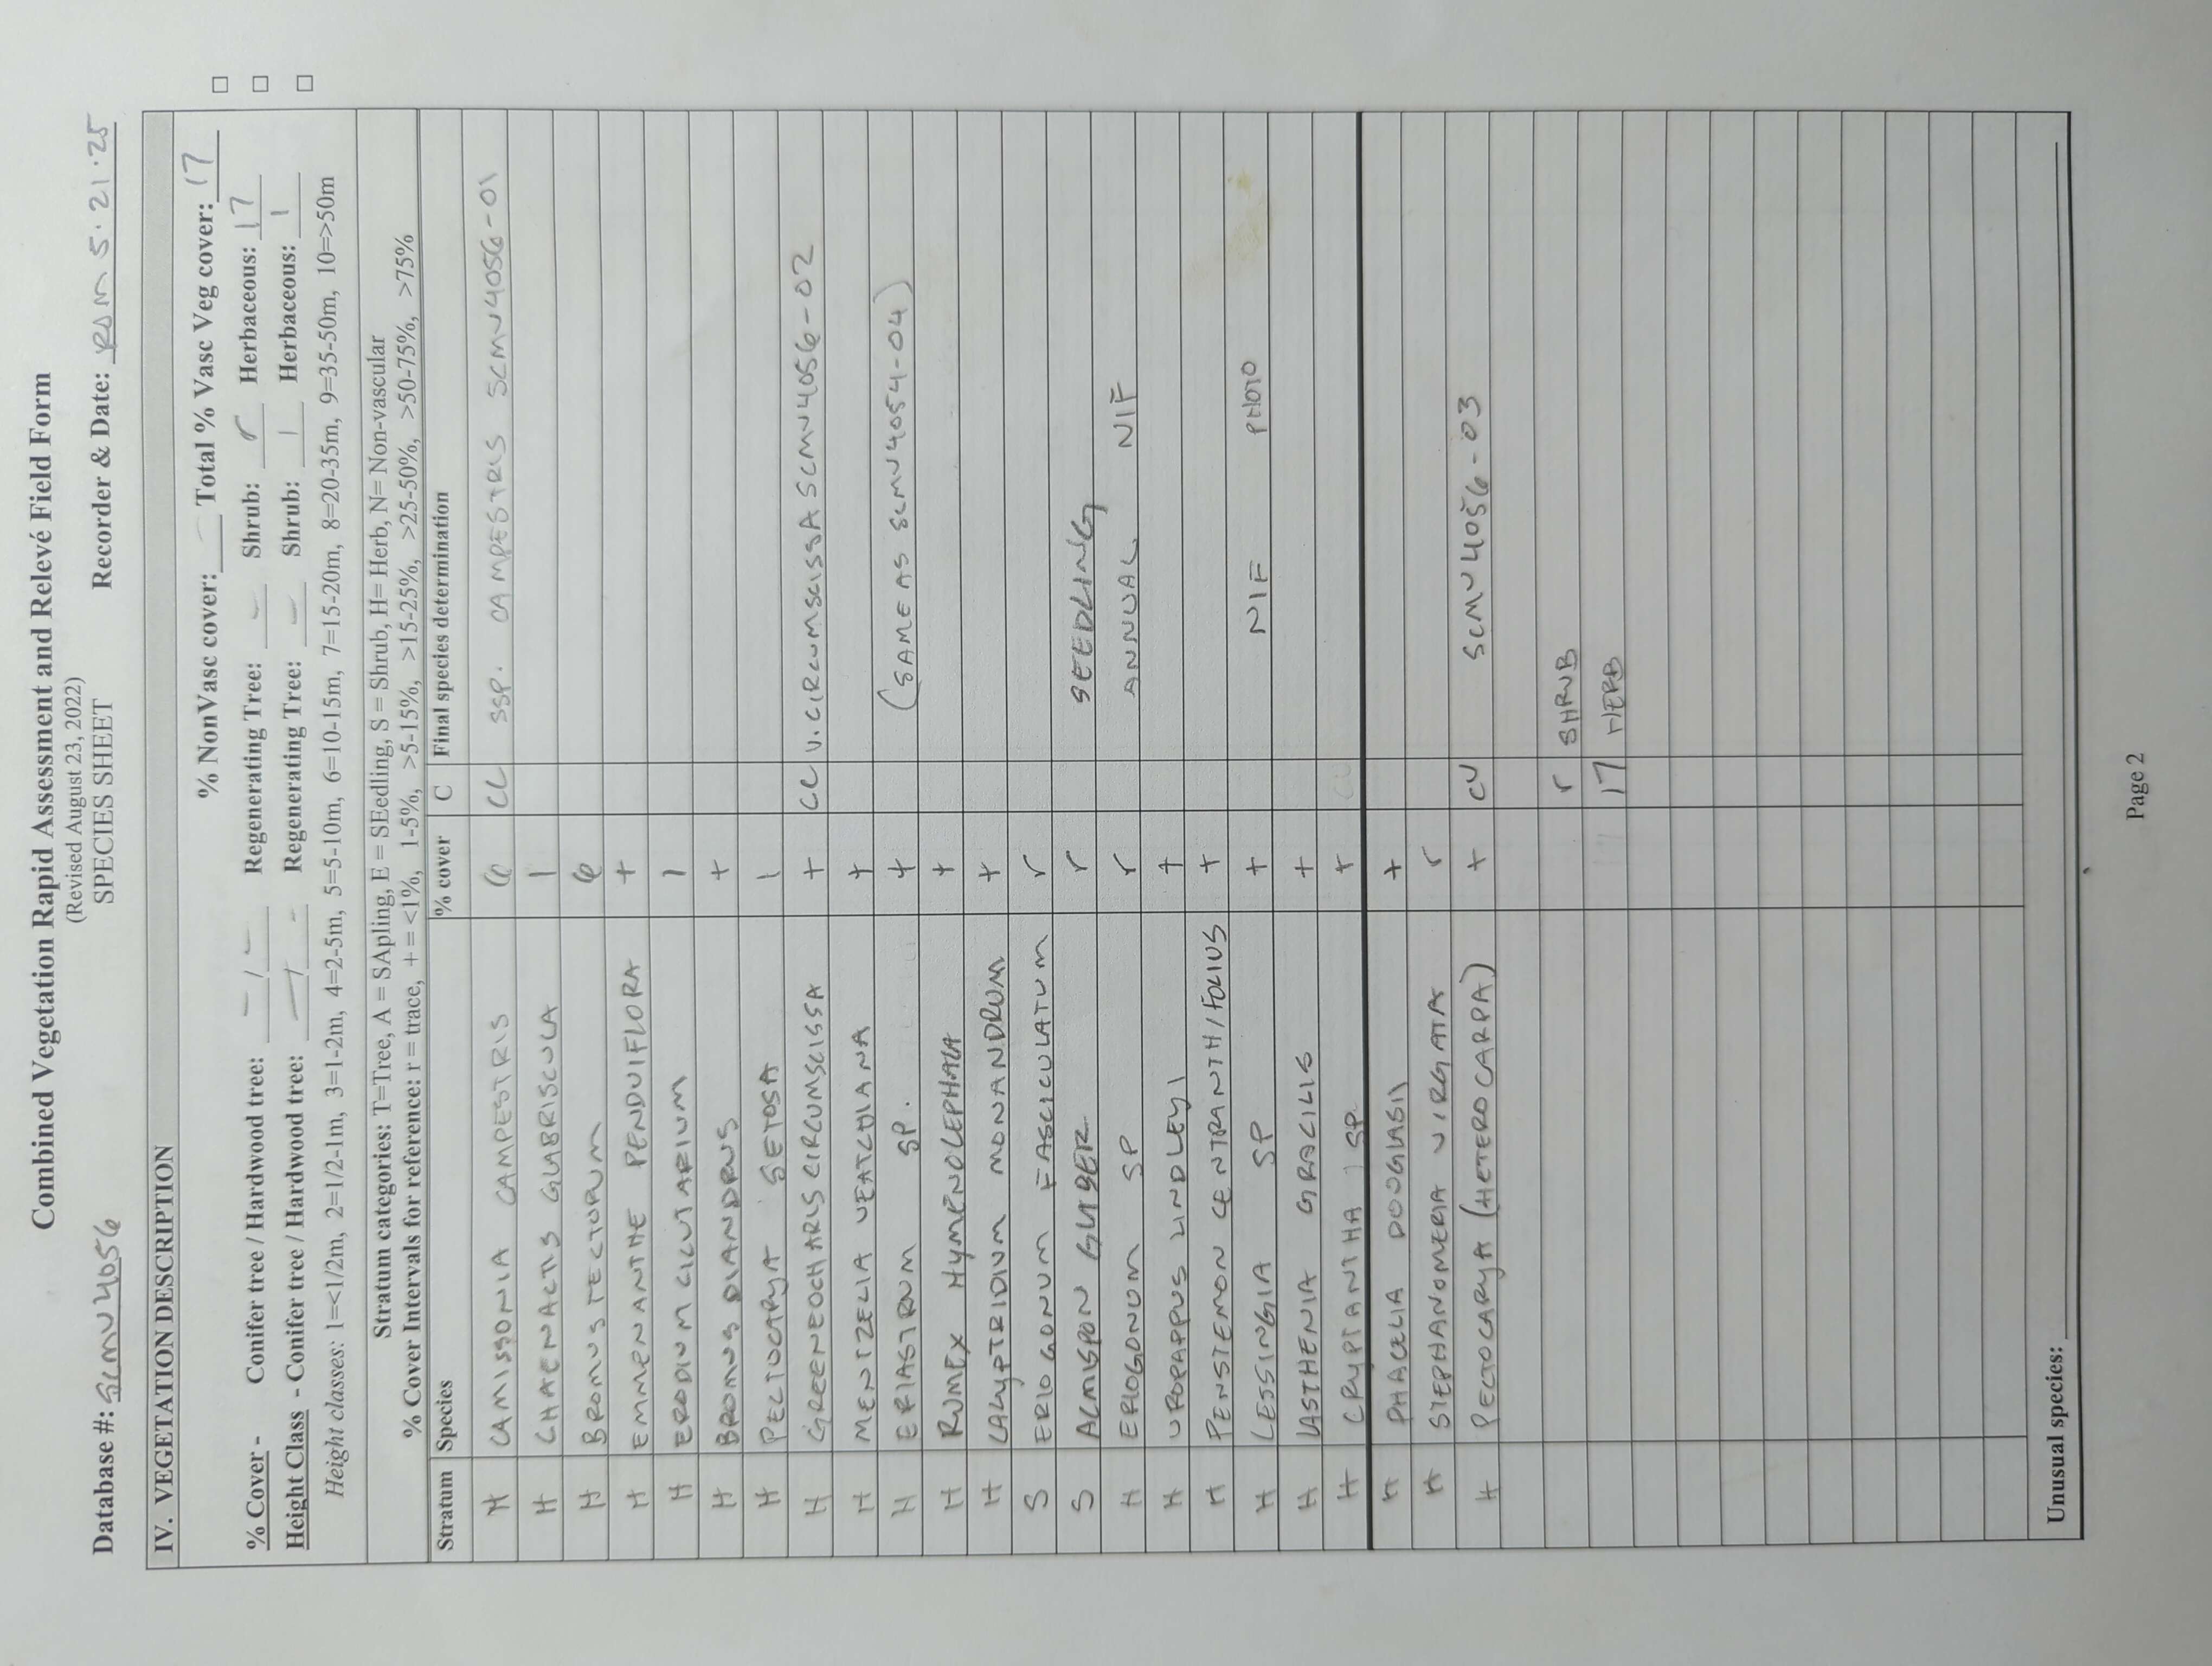 Combined Vegetation Rapid Assessment and Relevé Field Form
(Revised August 23, 2022)
SPECIES SHEET
Database #: SCMV4056 Recorder & Date: RDM 5.21.25
IV. VEGETATION DESCRIPTION
% NonVasc cover: — Total % Vasc Veg cover: 17 □
% Cover - Conifer tree / Hardwood tree: - / - Regenerating Tree: - Shrub: r Herbaceous: 17 □
Height Class - Conifer tree / Hardwood tree: - / - Regenerating Tree: - Shrub: 1 Herbaceous: 1 □
Height classes: 1=<1/2m, 2=1/2-1m, 3=1-2m, 4=2-5m, 5=5-10m, 6=10-15m, 7=15-20m, 8=20-35m, 9=35-50m, 10=>50m
Stratum categories: T=Tree, A = SApling, E = SEedling, S = Shrub, H= Herb, N= Non-vascular
% Cover Intervals for reference: r = trace, + = <1%, 1-5%, >5-15%, >15-25%, >25-50%, >50-75%, >75%
Stratum Species % cover C Final species determination
H CAMISSONIA CAMPESTRIS 6 CL SSP. CAMPESTRIS SCMV4056-01
H CHAENACTIS GLABRISCULA 1
H BROMUS TECTORUM 6
H EMMENANTHE PENDULIFLORA +
H ERODIUM CICUTARIUM 1
H BROMUS DIANDRUS +
H PECTOCARYA SETOSA 1
H GREENEOCHARIS CIRCUMSCISSA + CL V. CIRCUMSCISSA SCMV4056-02
H MENTZELIA VEATCHIANA +
H ERIASTRUM SP. + (SAME AS SCMV4054-04)
H RUMEX HYMENOLEPHALA +
H CALYPTRIDIUM MONANDRUM +
S ERIOGONUM FASCICULATUM r
S ACMISPON GLABER r SEEDLING
H ERIOGONUM SP r ANNUAL NIF
H UROPAPPUS LINDLEYI +
H PENSTEMON CENTRANTHIFOLIUS +
H LESSINGIA SP + NIF PHOTO
H LASTHENIA GRACILIS +
H CRYPTANTHA SP. +
H PHACELIA DOUGLASII +
H STEPHANOMERIA VIRGATA r
H PECTOCARYA (HETEROCARPA) + CV SCMV4056-03
r SHRUB
17 HERB
Unusual species:
Page 2